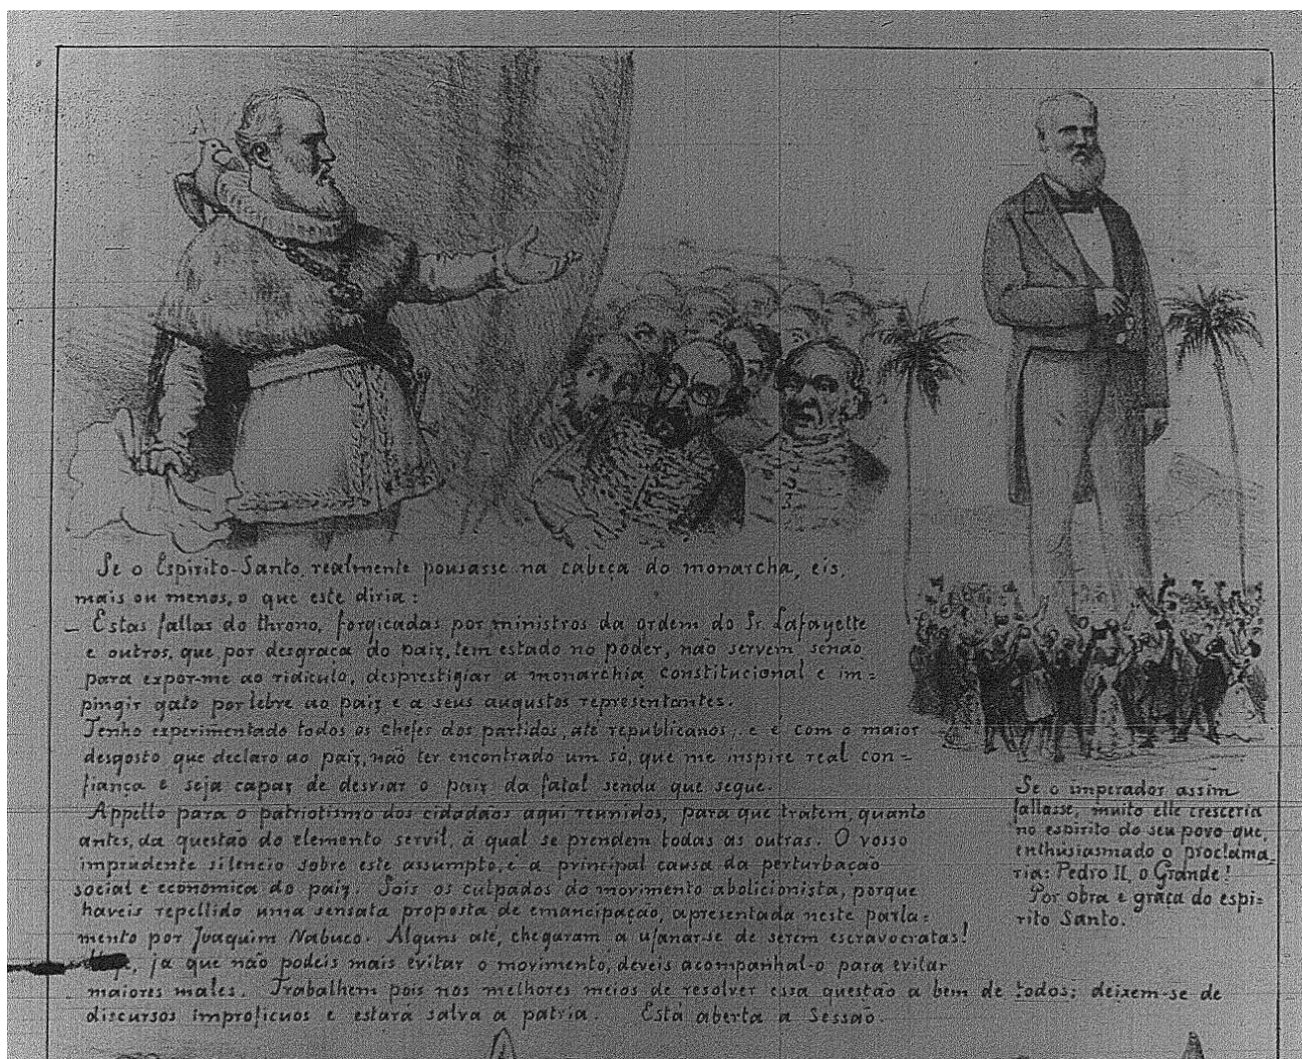 Se o Espirito-Santo, realmente pousasse na cabeça do monarcha, eis,
mais ou menos, o que este diria:
— Estas fallas do throno, forgicadas por ministros da ordem do Sr. Lafayette
e outros, que por desgraça do paiz, tem estado no poder, não servem senão
para expor-me ao ridiculo, desprestigiar a monarchia constitucional e im=
pingir gato por lebre ao paiz e a seus augustos representantes.
Tenho experimentado todos os chefes dos partidos, até republicanos, e é com o maior
desgosto que declaro ao paiz, não ter encontrado um só, que me inspire real con=
fiança e seja capaz de desviar o paiz da fatal senda que segue.
Appello para o patriotismo dos cidadãos aqui reunidos, para que tratem, quanto
antes, da questão do elemento servil, á qual se prendem todas as outras. O vosso
imprudente silencio sobre este assumpto, é a principal causa da perturbação
social e economica do paiz. Sois os culpados do movimento abolicionista, porque
haveis repellido uma sensata proposta de emancipação, apresentada neste parla=
mento por Joaquim Nabuco. Alguns até, chegaram a ufanar-se de serem escravocratas!
já que não podeis mais evitar o movimento, deveis acompanhal-o para evitar
maiores males. Trabalhem pois nos melhores meios de resolver essa questão a bem de todos; deixem-se de
discursos improficuos e estará salva a patria. Está aberta a Sessão.
Se o imperador assim
fallasse, muito elle cresceria
no espirito do seu povo que,
enthusiasmado o proclama_
ria: Pedro II, o Grande!
Por obra e graça do espi=
rito Santo.